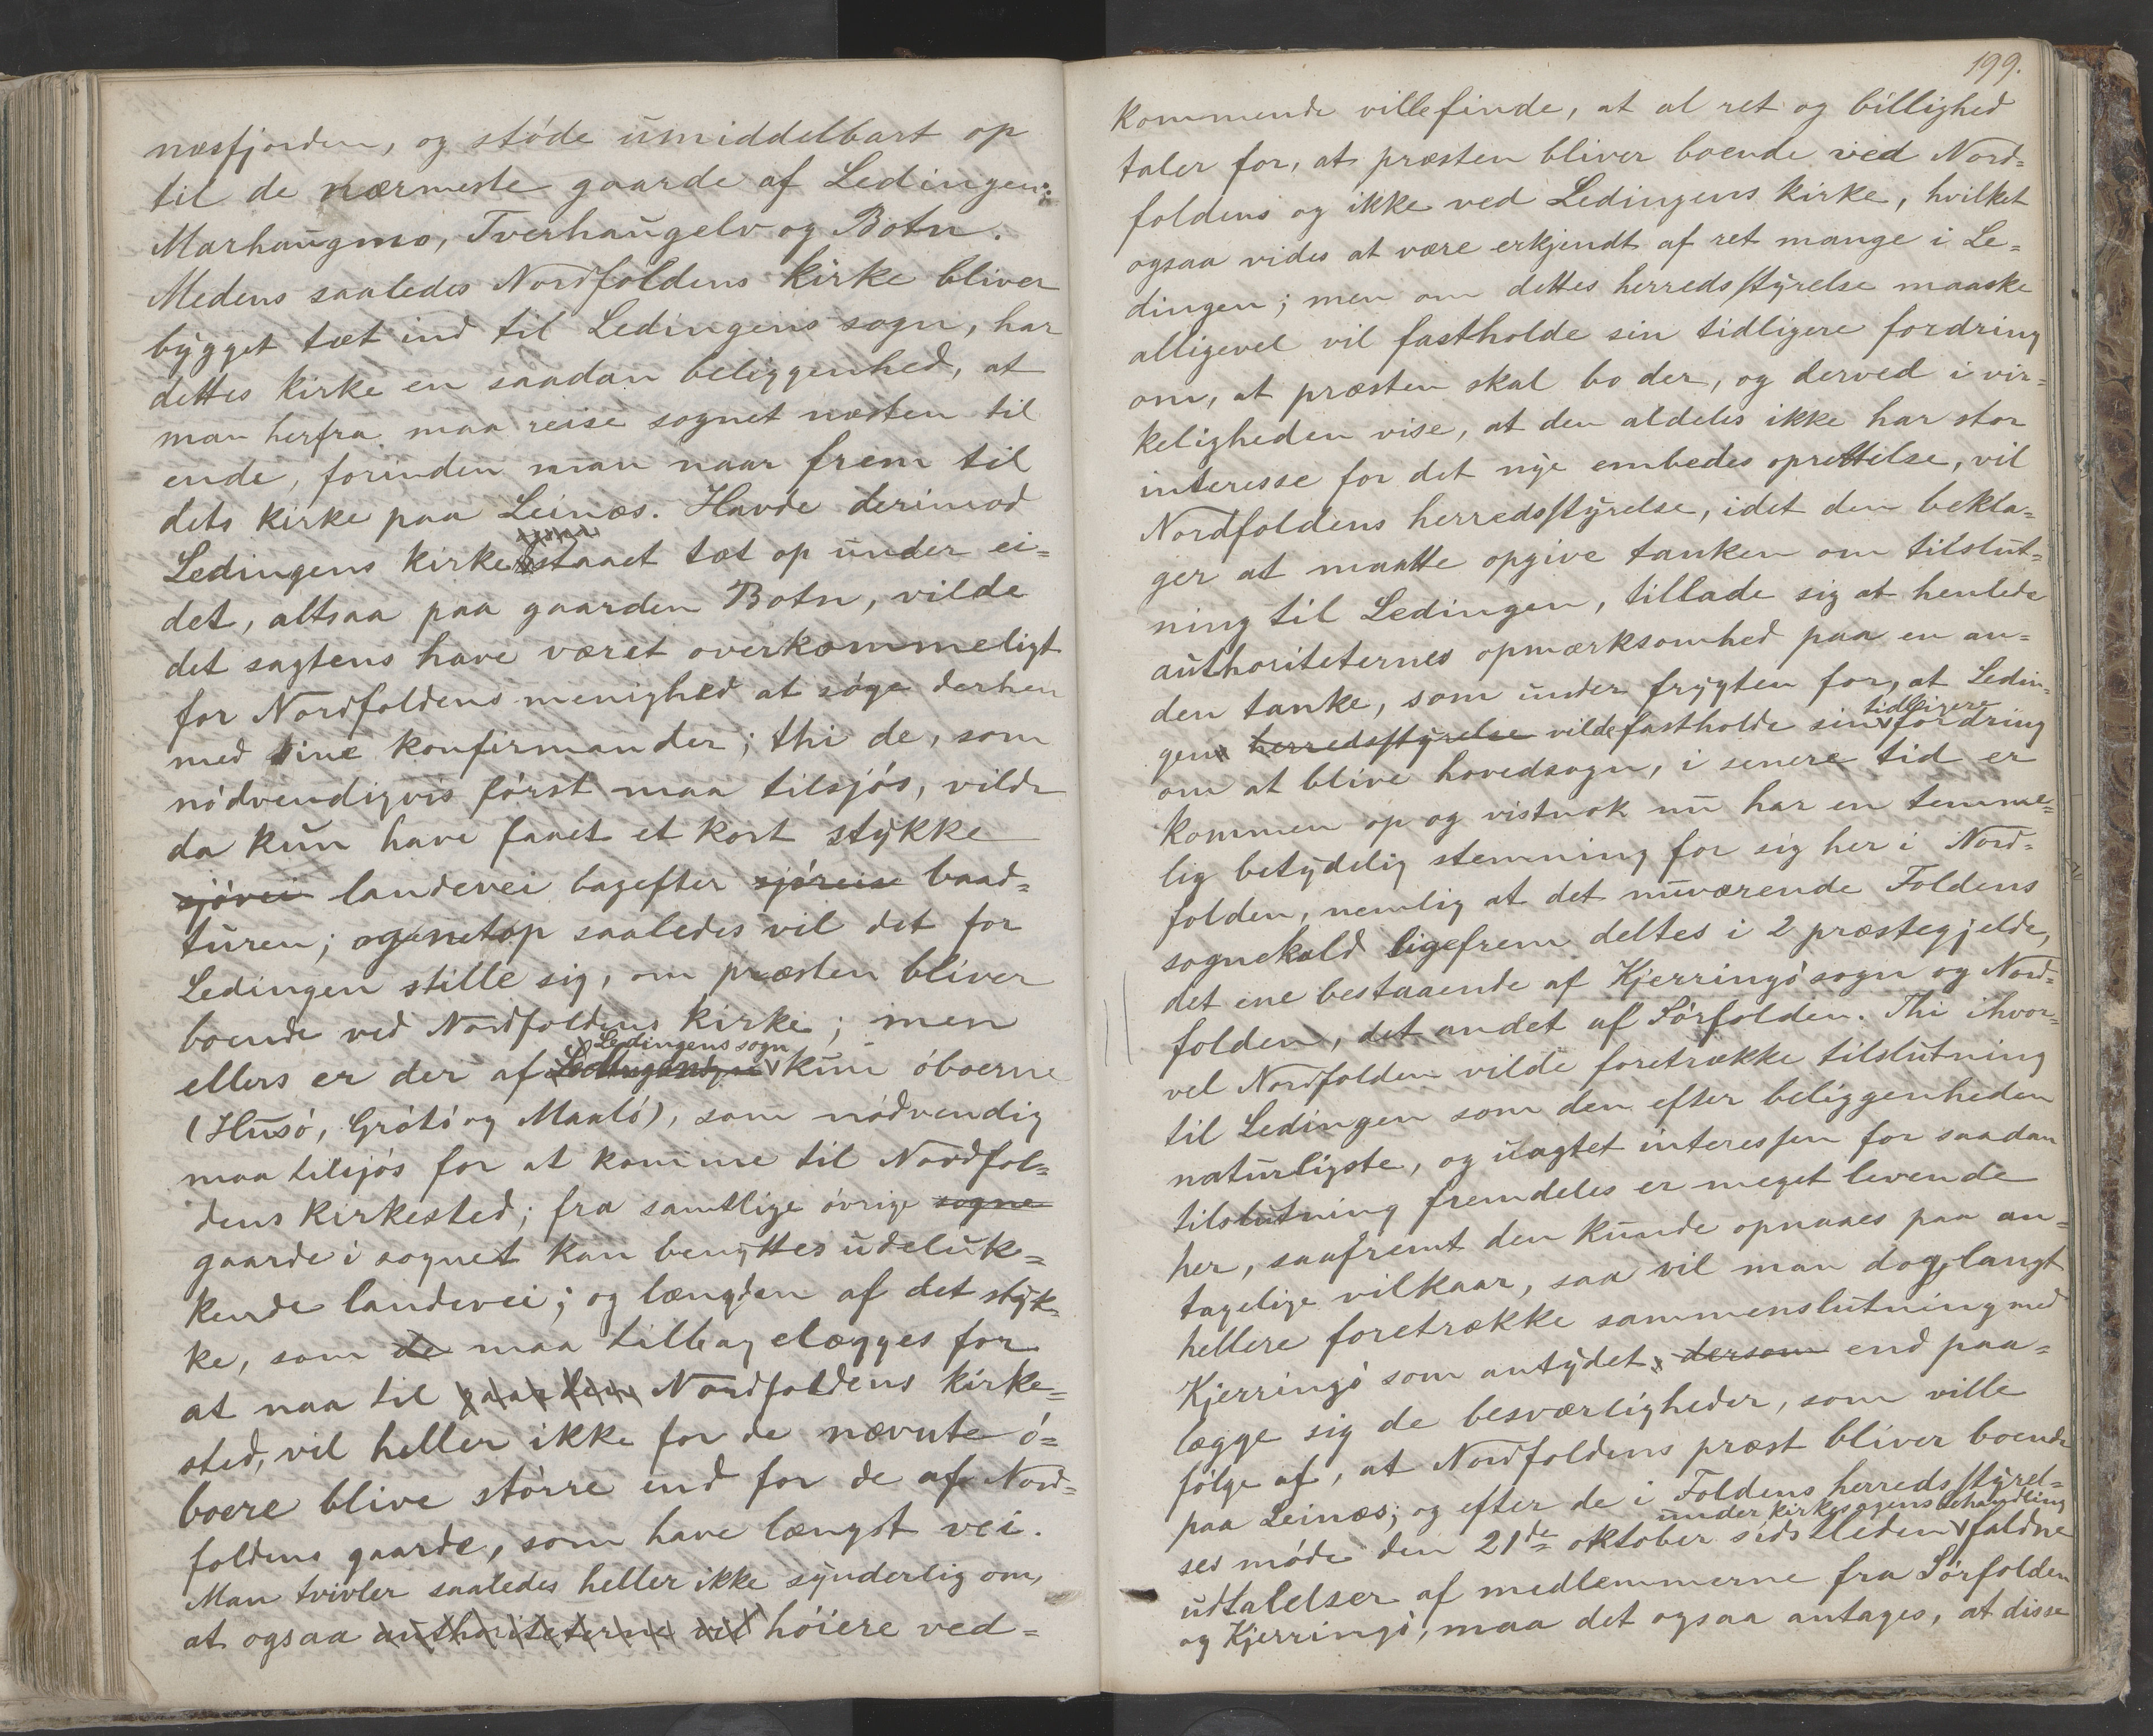 næsfjorden, og støde umiddelbart op
til de nærmeste gaarde af Ledingen:
Marhaugmo, Tverhaugelv og Botn.
Medens saaledes Nordfoldens kirke bliver
bygget tæt ind til Ledingens sogn, har
dettes kirke en saadan beliggenhed, at
man herfra maa reise sognet næsten til
ende, forinden man naar frem til
dets kirke paa Leinæs. Havde derimod
Ledingens kirke staaet tæt op under ei=
det, altsaa paa gaarden Botn, vilde
det sagtens have været overkommeligt
for Nordfoldens menighed at søge derhen
med sine konfirmander; thi de, som
nødvendigvis først maa tilsjøs, vilde
da kun have faaet et kort stykke
sjøvei landevei bagefter sjøreise baad=
turen; og netop saaledes vil det for
Ledingen stille sig, om præsten bliver
boende ved Nordfoldens kirke; men
ellers er der af Ledingens sogn kun øboerne
(Husø, Grøtø og Maalø), som nødvendig
maa tilsjøs for at komme til Nordfol=
dens kirkested; fra samtlige øvrige sogne
gaarde i sognet kan benyttes udeluk=
kende landevei; og længden af det styk=
ke, som de maa tilbagelægges for
at naa til gaarden Nordfoldens kirke=
sted, vil heller ikke for de nævnte ø=
boere blive større end for de af Nord=
foldens gaarde, som have længst vei.
Man tvivler saaledes heller ikke synderlig om,
at ogsaa authoriteterne vil høiere ved=
199.
kommende ville finde, at al ret og billighed
taler for, at præsten bliver boende ved Nord=
foldens og ikke ved Ledingens kirke, hvilket
ogsaa vides at være erkjendt af ret mange i Le=
dingen; men om dettes herredsstyrelse maaske
alligevel vil fastholde sin tidligere fordring
om, at præsten skal bo der, og derved i vir=
keligheden vise, at den aldeles ikke har stor
interesse for det nye embedes oprettelse, vil
Nordfoldens herredsstyrelse, idet den bekla=
ger at maatte opgive tanken om tilslut=
ning til Ledingen, tillade sig at henlede
authoriteternes opmærksomhed paa en an=
den tanke, som under frygten for, at Ledin=
gens herredsstyrelse vilde fastholde sin tidligere fordring
om at blive hovedsogn, i senere tid er
kommen op og vistnok nu har en temme=
lig betydelig stemning for sig her i Nord=
folden, nemlig at det nuværende Foldens
sognekald ligefrem deltes i 2 præstegjelde,
det ene bestaaende af Kjerringø sogn og Nord=
folden, det andet af Sørfolden. Thi ihvor=
vel Nordfolden vilde foretrække tilslutning
til Ledingen som den efter beliggenheden
naturligste, og uagtet interessen for saadan
tilslutning fremdeles er meget levende
her, saafremt den kunde opnaaes paa an=
tagelige vilkaar, saa vil man dog langt
hellere foretrække sammenslutning med
Kjerringø som antydet, dersom end paa=
lægge sig de besværligheder, som ville
følge af, at Nordfoldens præst bliver boende
paa Leinæs; og efter de i Foldens herredsstyrel=
ses møde den 21de oktober sidstleden under kirkesagens behandling faldne
udtalelser af medlemmerne fra Sørfolden
og Kjerringø, maa det ogsaa antages, at disse